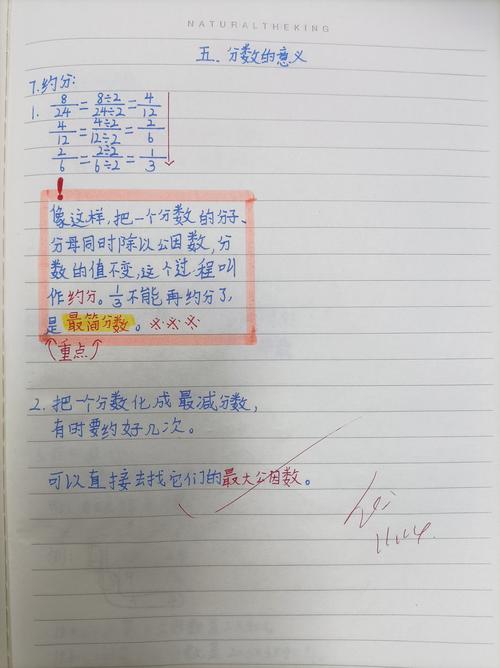 NATURALTHEKING
五、分数的意义
7.约分:
1. 8/24 = 8÷2/24÷2 = 4/12
4/12 = 4÷2/12÷2 = 2/6
2/6 = 2÷2/6÷2 = 1/3
!
像这样,把一个分数的分子、
分母同时除以公因数,分
数的值不变,这个过程叫
作约分。1/3不能再约分了,
是最简分数。
(重点)
2.把一个分数化成最减分数,
有时要约好几次。
可以直接去找它们的最大公因数。
11.14.